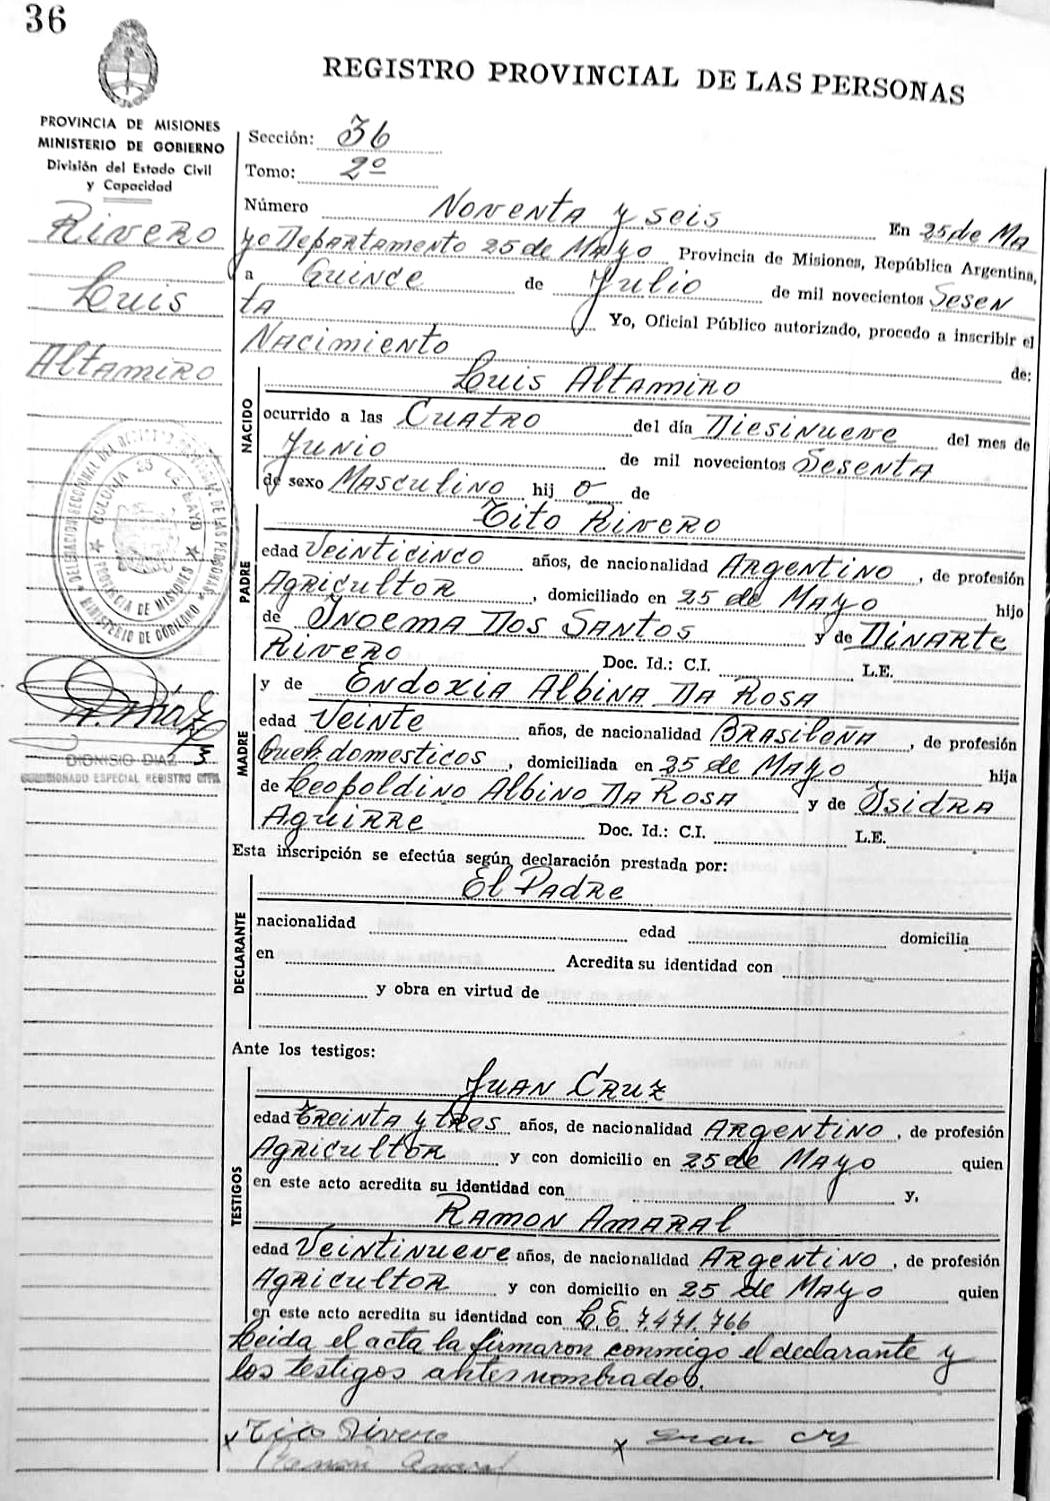 36
REGISTRO PROVINCIAL DE LAS PERSONAS
PROVINCIA DE MISIONES
MINISTERIO DE GOBIERNO
División del Estado Civil
y Capacidad
Rivero
Luis
Altamiro
COLONIA 25 DE MAYO
PROVINCIA DE MISIONES
MINISTERIO DE GOBIERNO
DIONISIO DIAZ
COMISIONADO ESPECIAL REGISTRO CIVIL
Sección: 36
Tomo: 2º
Número Noventa y seis En 25 de Ma
yo Departamento 25 de Mayo Provincia de Misiones, República Argentina,
a Quince de Julio de mil novecientos Sesen
ta Yo, Oficial Público autorizado, procedo a inscribir el
Nacimiento de:
NACIDO
Luis Altamiro
ocurrido a las Cuatro del día Diesinueve del mes de
Junio de mil novecientos Sesenta
de sexo Masculino hij o de
PADRE
Tito Rivero
edad Veinticinco años, de nacionalidad Argentino, de profesión
Agricultor, domiciliado en 25 de Mayo hijo
de Inoema Dos Santos y de Dinarte
Rivero Doc. Id.: C.I. L.E.
MADRE
y de Endoxia Albina Da Rosa
edad Veinte años, de nacionalidad Brasileña, de profesión
Queh domesticos, domiciliada en 25 de Mayo hija
de Leopoldino Albino Da Rosa y de Isidra
Aguirre Doc. Id.: C.I. L.E.
Esta inscripción se efectúa según declaración prestada por:
DECLARANTE
El Padre
nacionalidad edad domicilia
en Acredita su identidad con
y obra en virtud de
Ante los testigos:
TESTIGOS
Juan Cruz
edad Treinta y tres años, de nacionalidad Argentino, de profesión
Agricultor y con domicilio en 25 de Mayo quien
en este acto acredita su identidad con y,
Ramon Amaral
edad Veintinueve años, de nacionalidad Argentino, de profesión
Agricultor y con domicilio en 25 de Mayo quien
en este acto acredita su identidad con L.E 7.471.766
Leida el acta la firmaron conmigo el declarante y
los testigos antes nombrados.
x Tito Rivero x Juan
Ramon Amaral